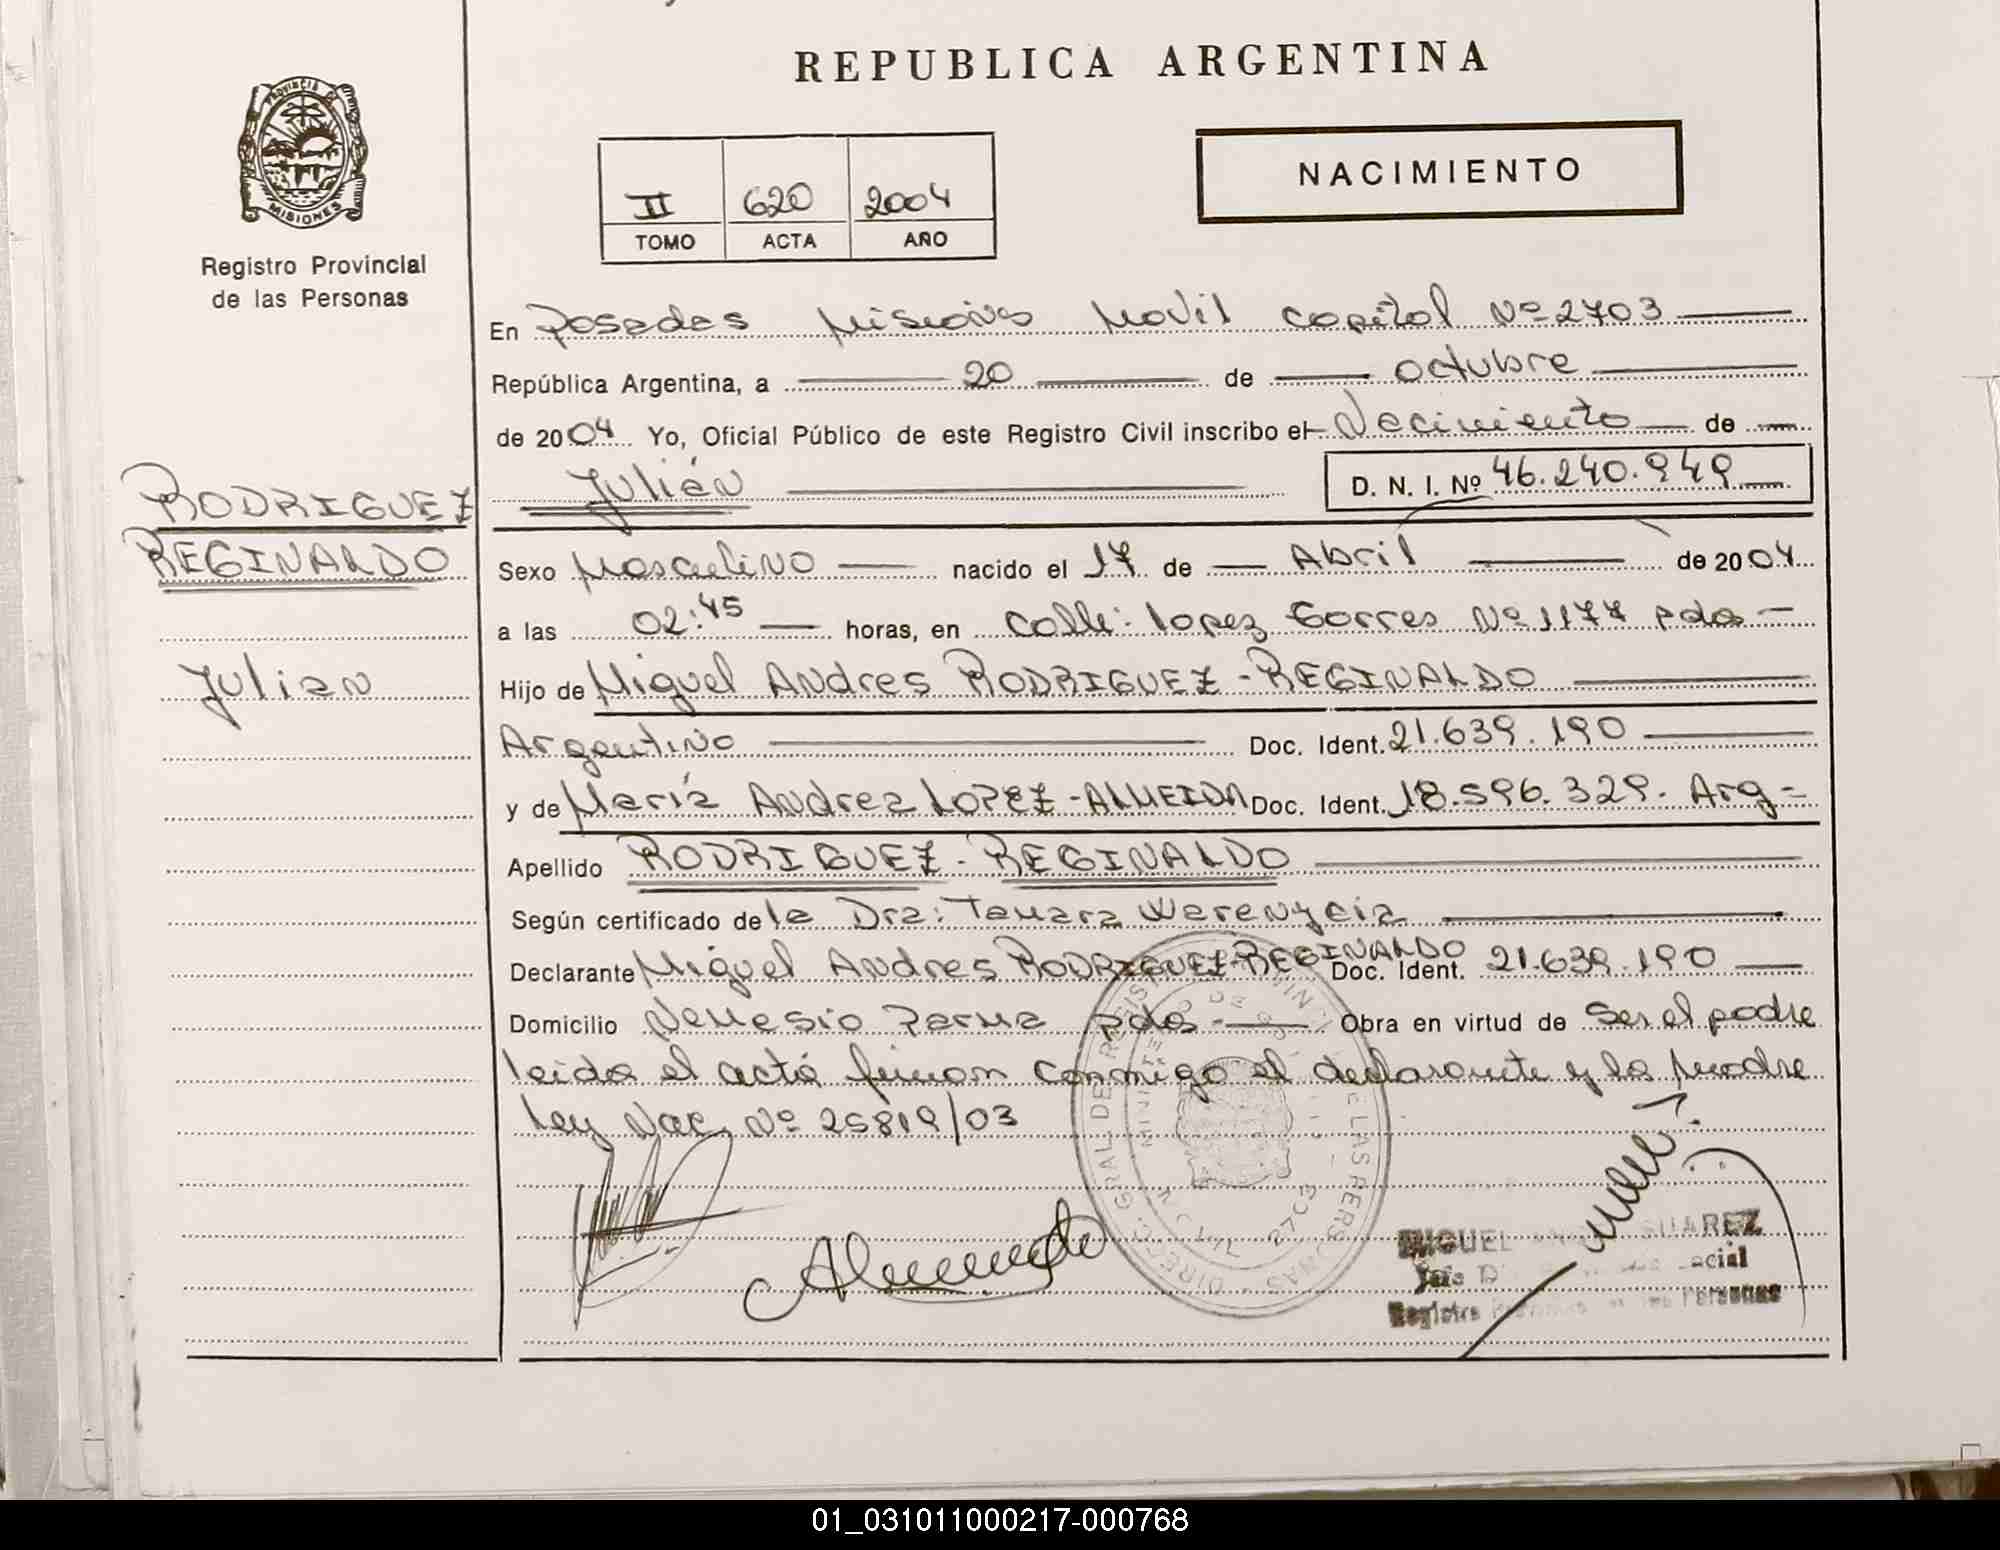 REPUBLICA ARGENTINA
PROVINCIA DE
MISIONES
Registro Provincial
de las Personas
II 620 2004
TOMO ACTA AÑO
NACIMIENTO
En Posadas Misiones Movil capital Nº 2703
República Argentina, a 20 de octubre
de 2004 Yo, Oficial Público de este Registro Civil inscribo el Nacimiento de
RODRIGUEZ
REGINALDO
Julian
Julián D. N. I. Nº 46.240.949
Sexo Masculino nacido el 17 de Abril de 2004
a las 02:45 horas, en calle: Lopez Torres Nº 1177 pdas
Hijo de Miguel Andres RODRIGUEZ - REGINALDO
Argentino Doc. Ident. 21.639.190
y de María Andrea LOPEZ - ALMEIDA Doc. Ident. 18.596.329. Arg=
Apellido RODRIGUEZ - REGINALDO
Según certificado de la Dra: Tamara
Declarante Miguel Andres RODRIGUEZ-REGINALDO Doc. Ident. 21.639.190
Domicilio Nemesio Parma pdas - Obra en virtud de ser el padre
leida el acta firman conmigo el declarante y la madre
ley Nac. Nº 25819/03
MIGUEL SUAREZ
Registro Personas
01_031011000217-000768